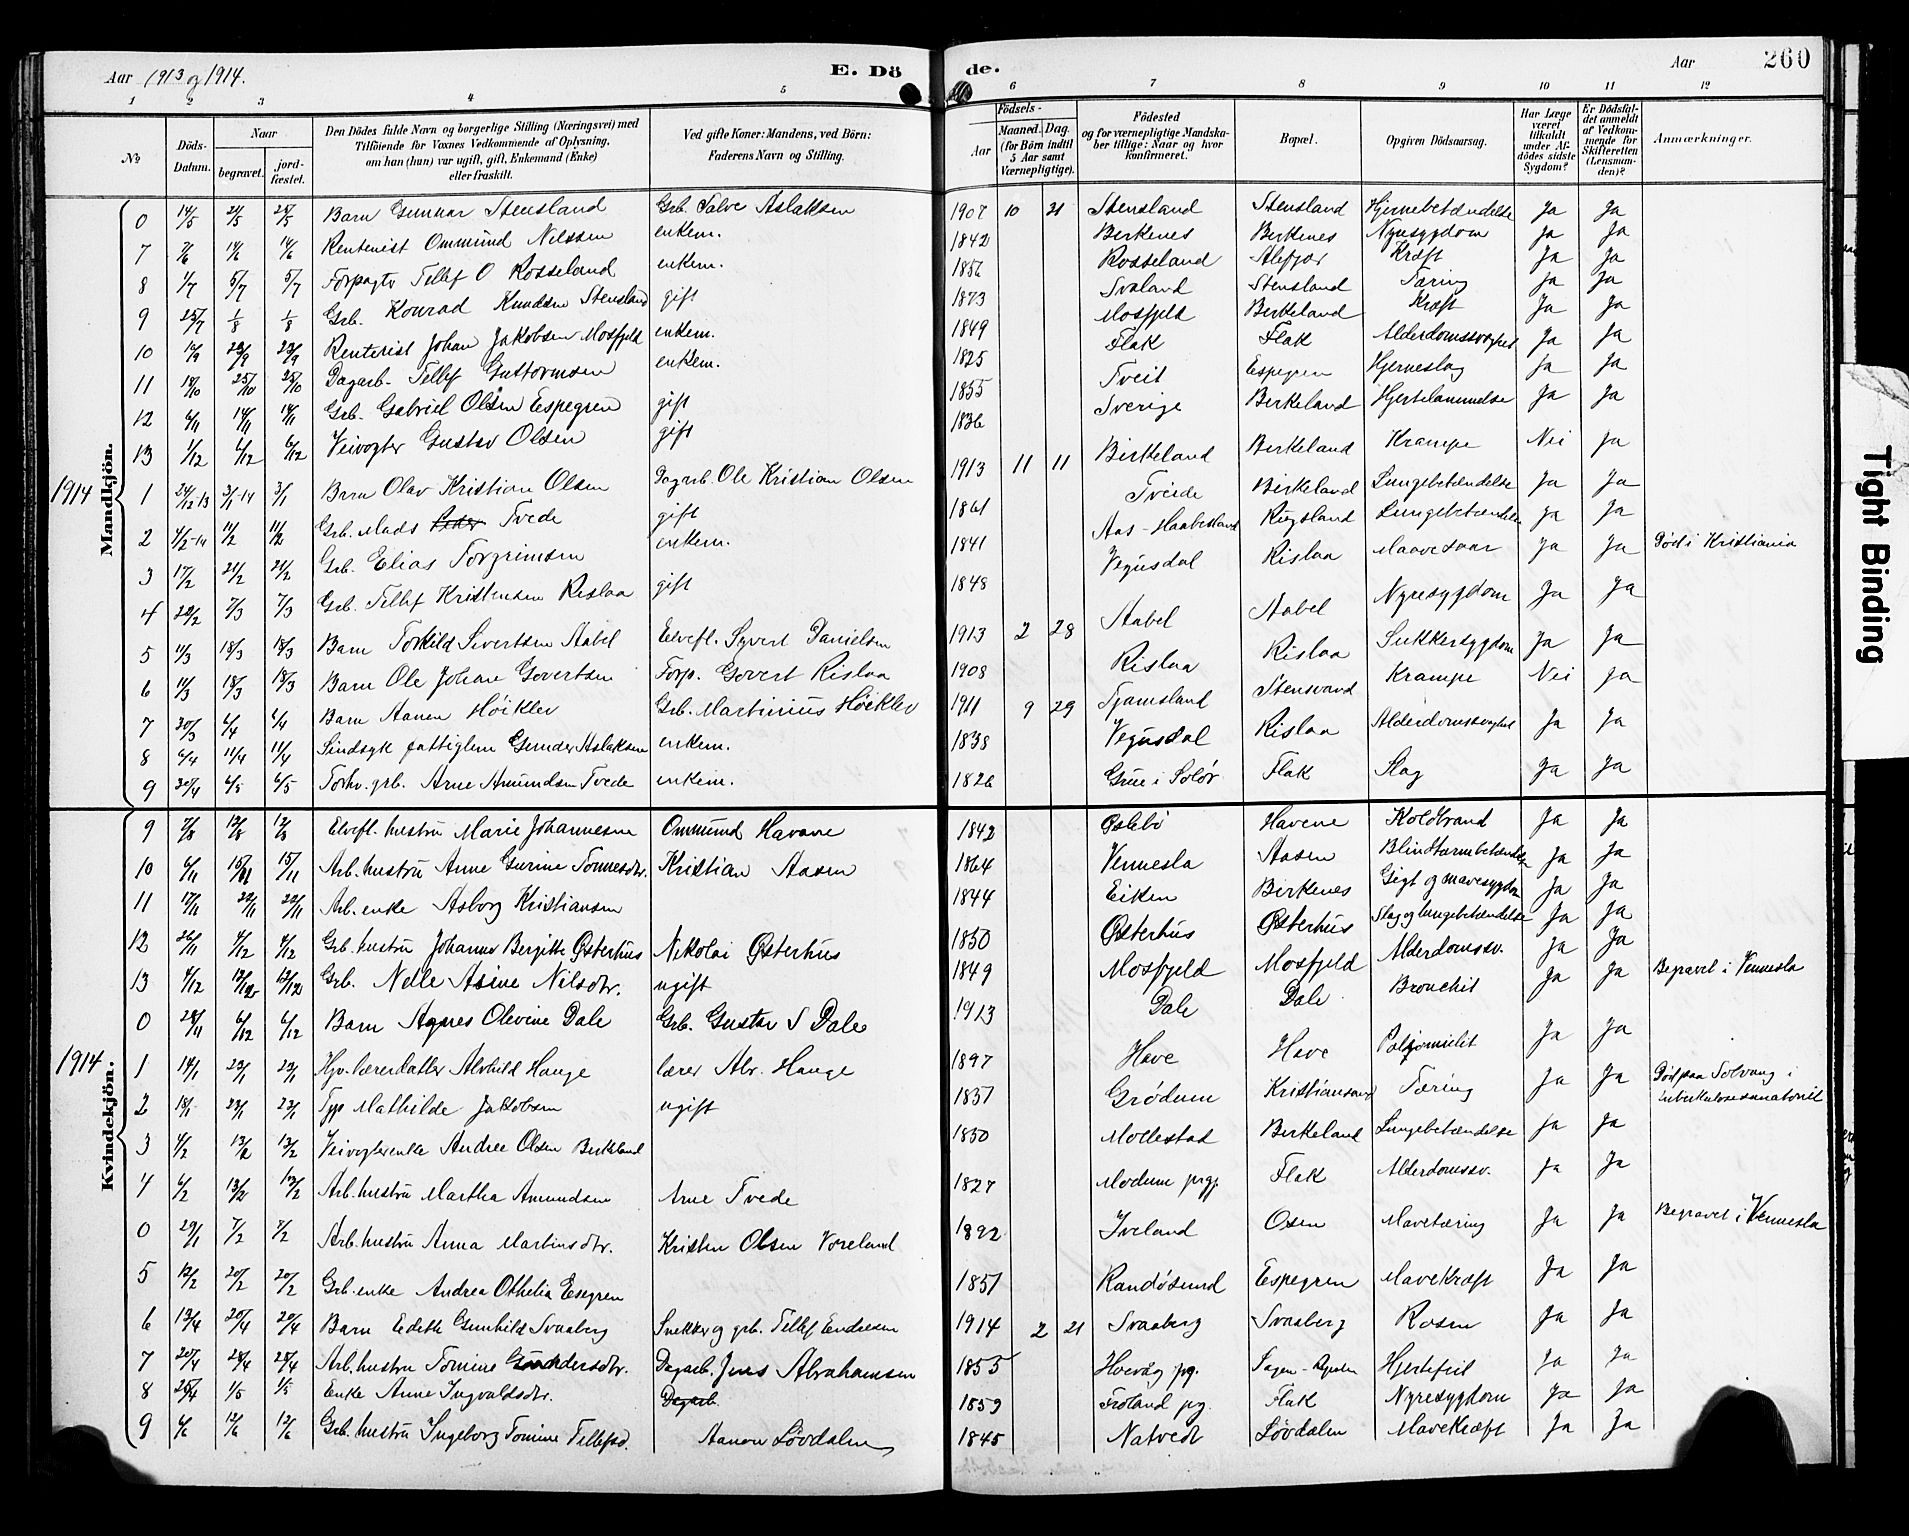 Aar 1913 og 1914. E. Dö de. Aar 260
1 2 3 4 5 6 7 8 9 10 11 12
No Döds-Datum. Naar begravet. jord-fæstet. Den Dödes fulde Navn og borgerlige Stilling (Næringsvei) med Tilföiende for Voxnes Vedkommende af Oplysning, om han (hun) var ugift, gift, Enkemand (Enke) eller fraskilt. Ved gifte Koner: Mandens, ved Börn: Faderens Navn og Stilling. Födsels- Aar Maaned. Dag. (for Börn indtil 5 Aar samt Værnepligtige). Födested og for værnepligtige Mandska-ber tillige: Naar og hvor konfirmeret. Bopæl. Opgiven Dödsaarsag. Har Læge været tilkaldt under Af-dödes sidste Sygdom? Er Dödsfal-det anmeldt af Vedkom-mende for Skifteretten (Lensman-den)? Anmærkninger.
Mandkjön.
0 14/5 21/5 25/5 Barn Gunnar Stensland Grb. Salve Aslaksen 1907 10 31 Stensland Stensland Hjernebetændelse Ja Ja
7 7/6 14/6 14/6 Rentenist Ommund Nilssen enkem. 1842 Birkenes Birkenes Nyresygdom Ja Ja
8 1/7 5/7 5/7 Forpagtr Tellef O Rosseland enkem. Rosseland Kræft Ja Ja
9 25/7 1/8 1/8 Grb. Konrad Knudsen Stensland gift 1873 Svaland Stensland Tæring Ja Ja
10 23/9 23/9 Rentenist Johan Jakobsen Mosfjeld enkem. 1849 Mosfjeld Birkeland Kræft Ja Ja
11 18/10 25/10 25/10 Dagarb. Tellef Guttormsen enkem. 1825 Flak Flak Alderdomssvaghet Ja Ja
12 6/11 14/11 14/11 Grb. Gabriel Olsen Espegren gift 1855 Tveit Espegren Hjerneslag Ja Ja
13 1/12 6/12 6/12 Veivogter Gustav Olsen gift 1836 Sverige Birkeland Hjertelammelse Ja Ja
1914 1 24/12-13 3/1-14 3/1 Barn Olav Kristian Olsen Dagarb. Ole Kristian Olsen 1913 11 11 Birkeland Birkeland Krampe Nei Ja
2 4/2-14 11/2 11/2 Grb. Mads Tvede gift 1861 Tveide Birkeland Lungebetændelse Ja Ja
3 17/2 24/2 24/2 Grb. Elias Torgrimsen enkem. 1841 Aas-Haabesland Rugsland Lungebetændelse Ja Ja
4 20/2 7/3 7/3 Grb. Tellef Kristensen Rislaa gift 1848 Vegusdal Rislaa Mavesaar Ja Ja Död i Kristiania
5 11/3 18/3 18/3 Barn Torkild Sivertsen Aabel Elvefl. Syvert Danielsen 1913 2 28 Aabel Aabel Nyresygdom Ja Ja
6 11/3 18/3 18/3 Barn Ole Johan Govertsen Forp. Govert Rislaa 1908 Rislaa Rislaa Sukkersygdom Ja Ja
7 30/3 6/4 6/4 Barn Aanen Höiklev Grb. Martinius Höiklev 1911 9 29 Tjamsland Stensvand Krampe Nei Ja
8 6/4 11/4 11/4 Sindsyk fattiglem Gunder Aslaksen enkem. 1838 Vegusdal Rislaa Alderdomssvaghet Ja Ja
9 30/4 6/5 6/5 Forhv. grb. Arne Amundsen Tvede enkem. 1826 Grue i Solör Flak Slag Ja Ja
Kvindekjön.
9 7/8 12/8 12/8 Elvefl. hustru Marie Johannesen Ommund Havane 1842 Øslebö Havene Koldbrand Ja Ja
10 6/11 15/11 15/11 Arb. hustru Anne Gurine Tönnesdtr. Kristian Aasen 1864 Vennesla Aasen Blindtarmebetændelse Ja Ja
11 17/11 22/11 22/11 Arb. enke Asborg Kristiansen 1844 Eiken Birkenes Gigt og mavesygdom Ja Ja
12 26/11 4/12 4/12 Grb. hustru Johanne Bergitte Østerhus Nikolai Østerhus 1850 Østerhus Østerhus Slag og lungebetændelse Ja Ja
13 4/12 12/12 12/12 Grb. Nelle Asine Nilsdtr. ugift 1849 Mosfjeld Mosfjeld Alderdomssv. Ja Ja
0 28/11 6/12 6/12 Barn Agnes Olevine Dale Grb. Gustav S Dale 1913 Dale Dale Bronchit Ja Ja Begravet i Vennesla
1914 1 14/1 23/1 23/1 Hjv. lærerdatter Alvhild Hauge lærer Abr. Hauge 1897 Have Have Poljomielit Ja Ja
2 18/1 23/1 23/1 Mathilde Jakobsen ugift Grødum Kristiansand Tæring Ja Ja Död paa Solvang i tuberkulosesanatoriet
3 4/2 13/2 13/2 Veivogterenke Andree Olsen Birkeland 1850 Mollestad Birkeland Lungebetændelse Ja Ja
4 6/2 13/2 13/2 Arb. hustru Martha Amundsen Arne Tvede 1827 Modum prgj. Flak Alderdomssv. Ja Ja
0 29/1 7/2 7/2 Arb. hustru Anna Martinsdtr. Kristen Olsen Voreland 1892 Iveland Osen Mavetæring Ja Ja Begravet i Vennesla
5 12/2 20/2 20/2 Grb. enke Andrea Othelia Espegren 1851 Randøsund Espegren Mavekræft Ja Ja
6 13/4 20/4 20/4 Barn Edith Gunhild Svaaberg Snekker og grb. Tellef Endresen 1914 2 21 Svaaberg Svaaberg Rosen Ja Ja
7 20/4 28/4 28/4 Arb. hustru Tomine Gundersdtr. Dagarb. Jens Abrahamsen 1855 Hoevåg pg. Hjertefeil Ja Ja
8 25/4 1/5 1/5 Enke Anne Ingvaldsdtr. Dagarb. 1859 Froland pg. Flak Nyresygdom Ja Ja
9 6/6 12/6 12/6 Grb. hustru Ingeborg Tomine Tellefsd. Aanon Lövdalen 1845 Natvedt Lövdalen Mavekræft Ja Ja
Tight Binding